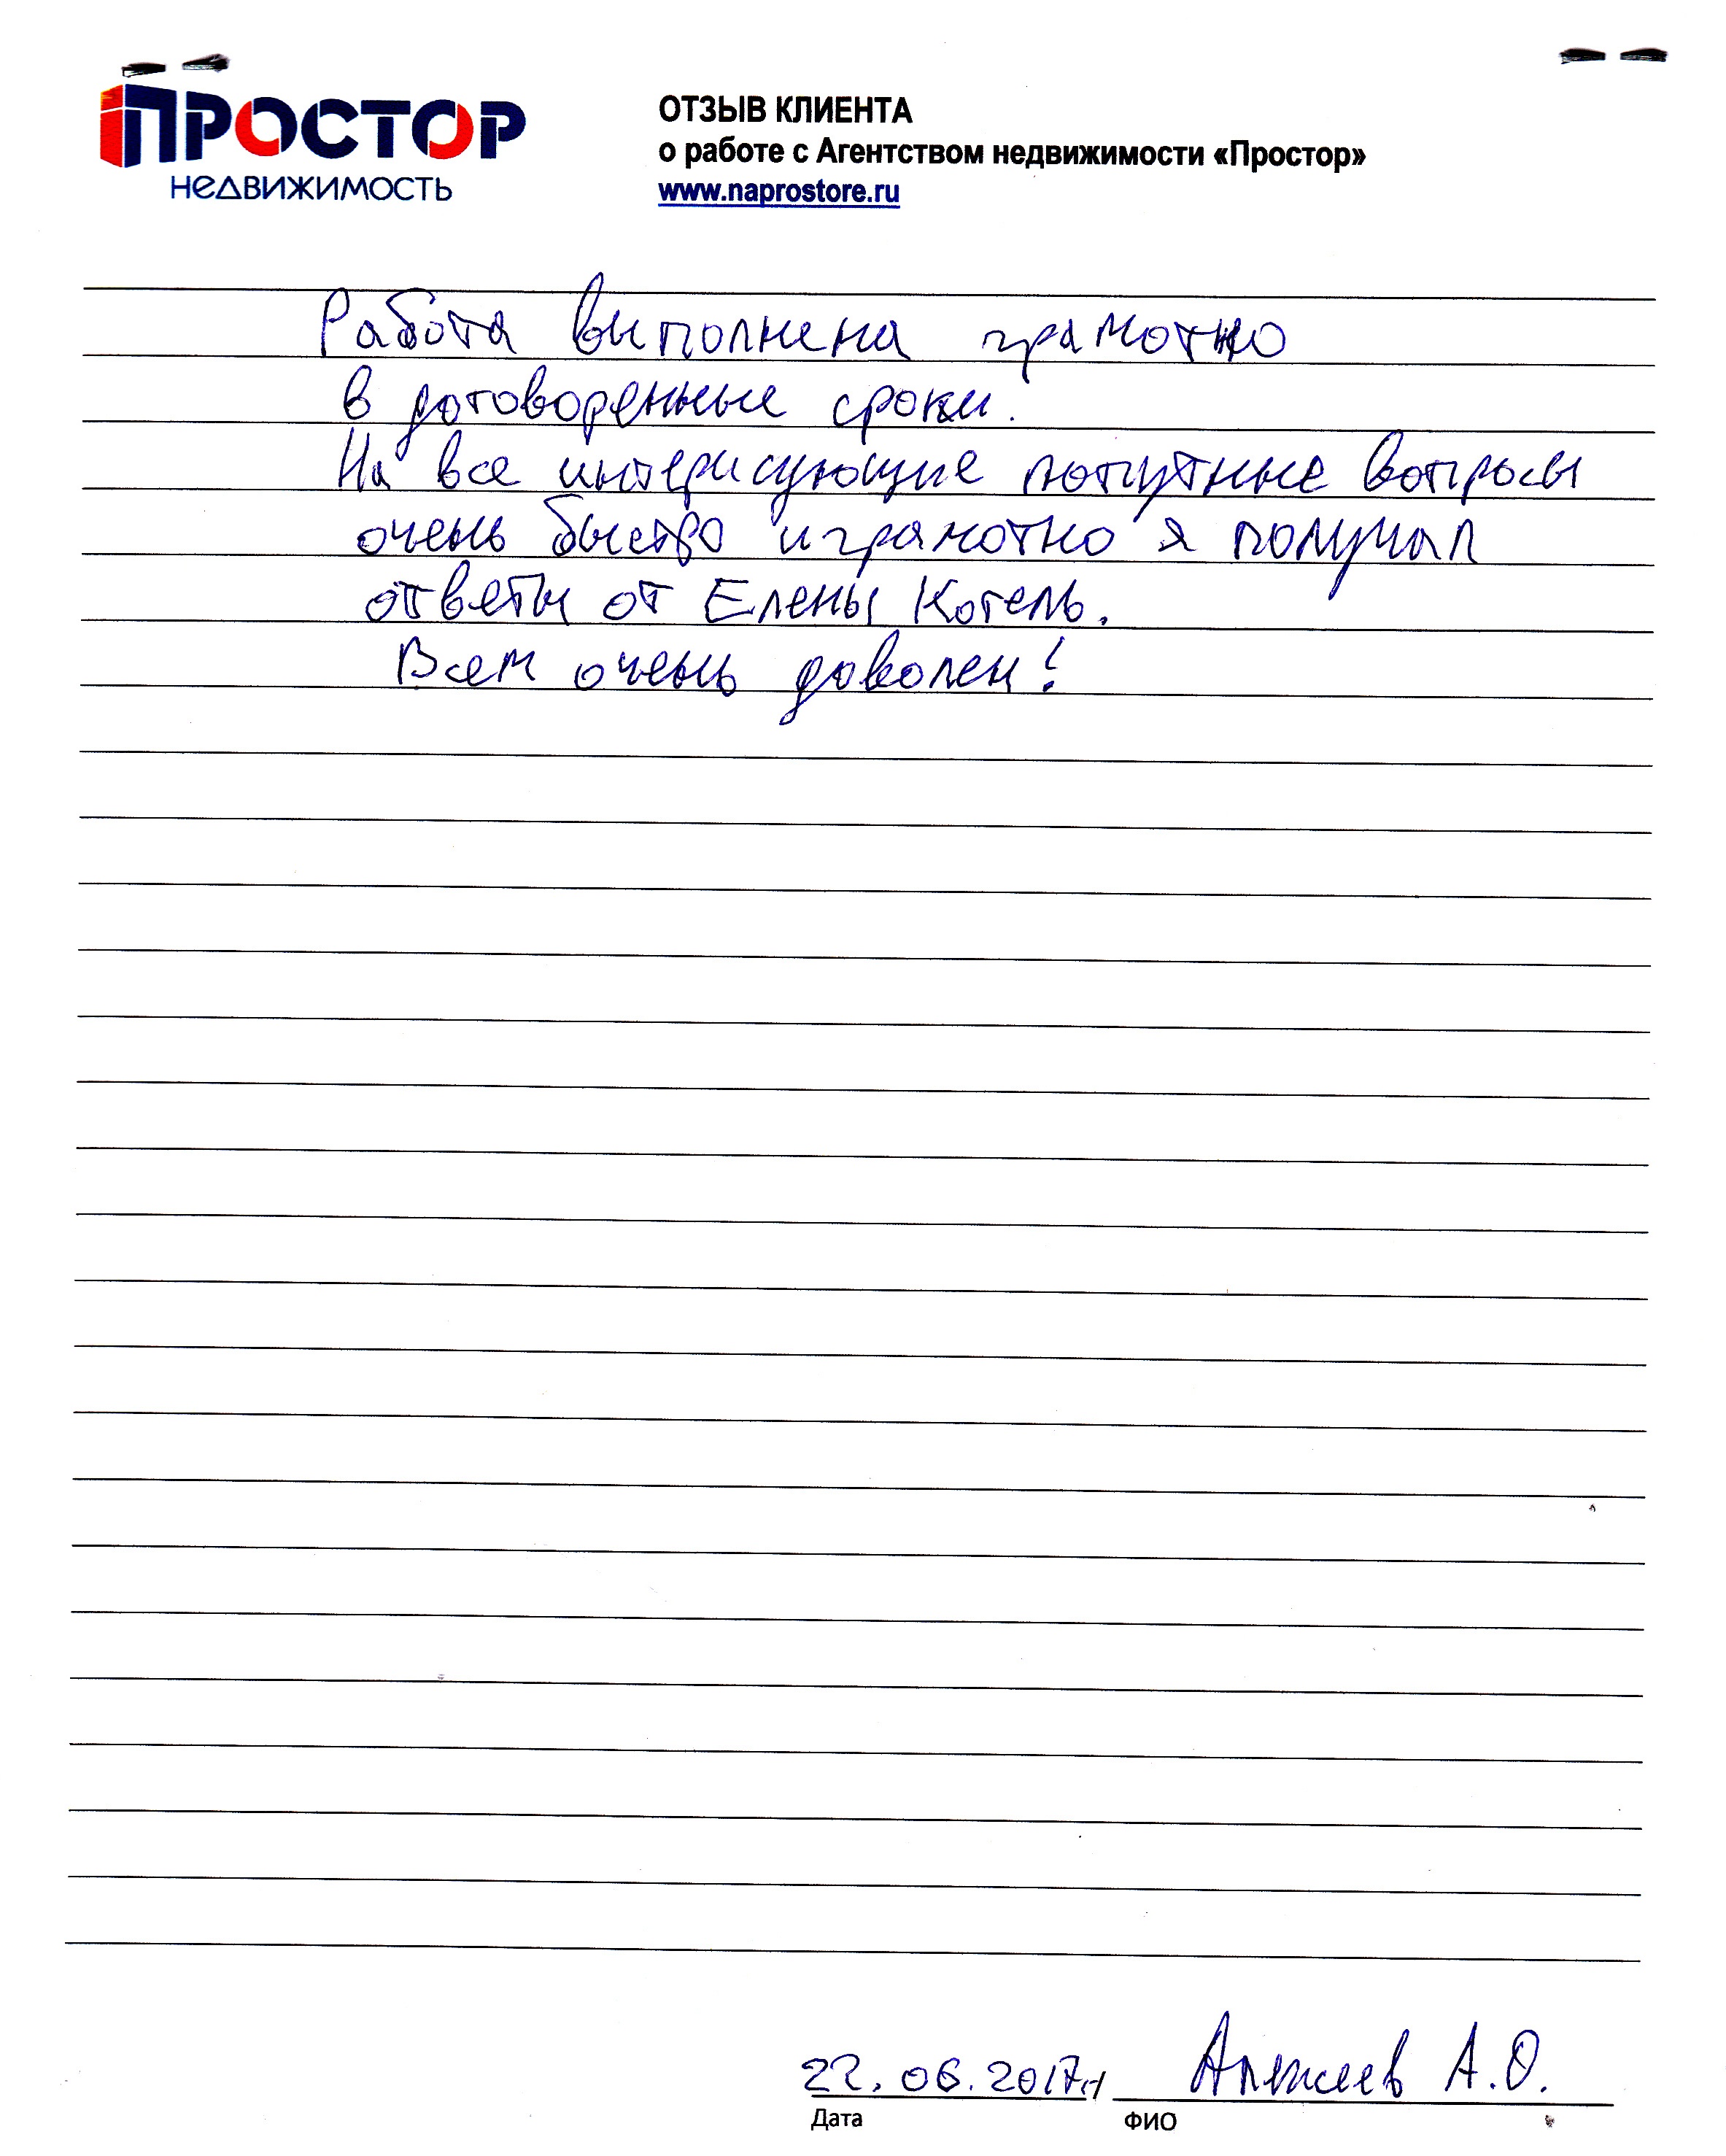 ПРОСТОР
НЕДВИЖИМОСТЬ
ОТЗЫВ КЛИЕНТА
о работе с Агентством недвижимости «Простор»
www.naprostore.ru
Работа выполнена грамотно
в договоренные сроки.
На все интерисующие попутные вопросы
очень быстро и грамотно я получал
ответы от Елены Когель.
Всем очень доволен!
22.06.2017г Алексеев А.О.
Дата ФИО